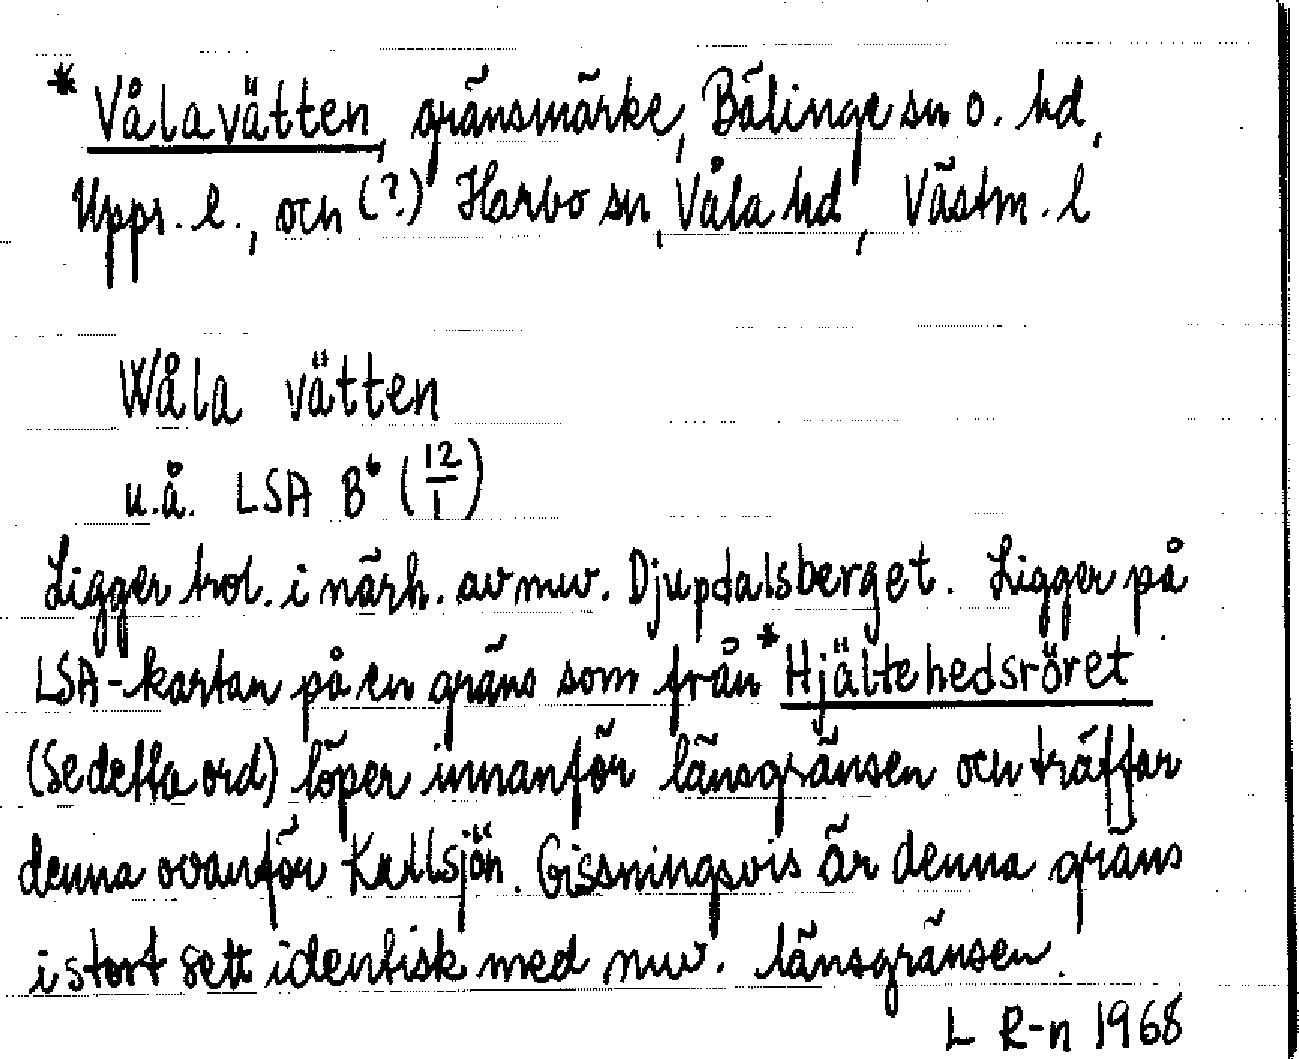 *Vålavätten, gränsmärke, Bälinge sn o. hd,
Upps. l., och (?) Harbo sn, Våla hd, Västm. l
Wåla vätten
u.å. LSA B6 (12/1)
Ligger trol. i närh. av nuv. Djupdalsberget. Ligger på
LSA-kartan på en gräns som från *Hjältehedsröret
(Se detta ord) löper innanför länsgränsen och träffar
denna ovanför Kallsjön. Gissningsvis är denna gräns
i stort sett identisk med nuv. länsgränsen.
L R-n 1968